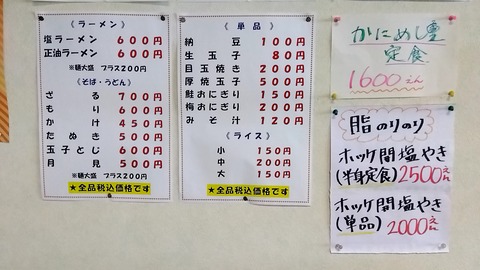 《ラーメン》
塩ラーメン 600円
正油ラーメン 600円
※麺大盛 プラス200円
《そば・うどん》
ざる 700円
もり 600円
かけ 450円
たぬき 500円
玉子とじ 600円
月見 500円
※麺大盛 プラス200円
★全品税込価格です
《単品》
納豆 100円
生玉子 80円
目玉焼き 200円
厚焼玉子 500円
鮭おにぎり 150円
梅おにぎり 200円
みそ汁 120円
《ライス》
小 150円
中 200円
大 150円
★全品税込価格です
かにめし重
定食
1600えん
脂のりのり
ホッケ開塩やき
(半身定食)2500えん
ホッケ開塩やき
(単品) 2000えん